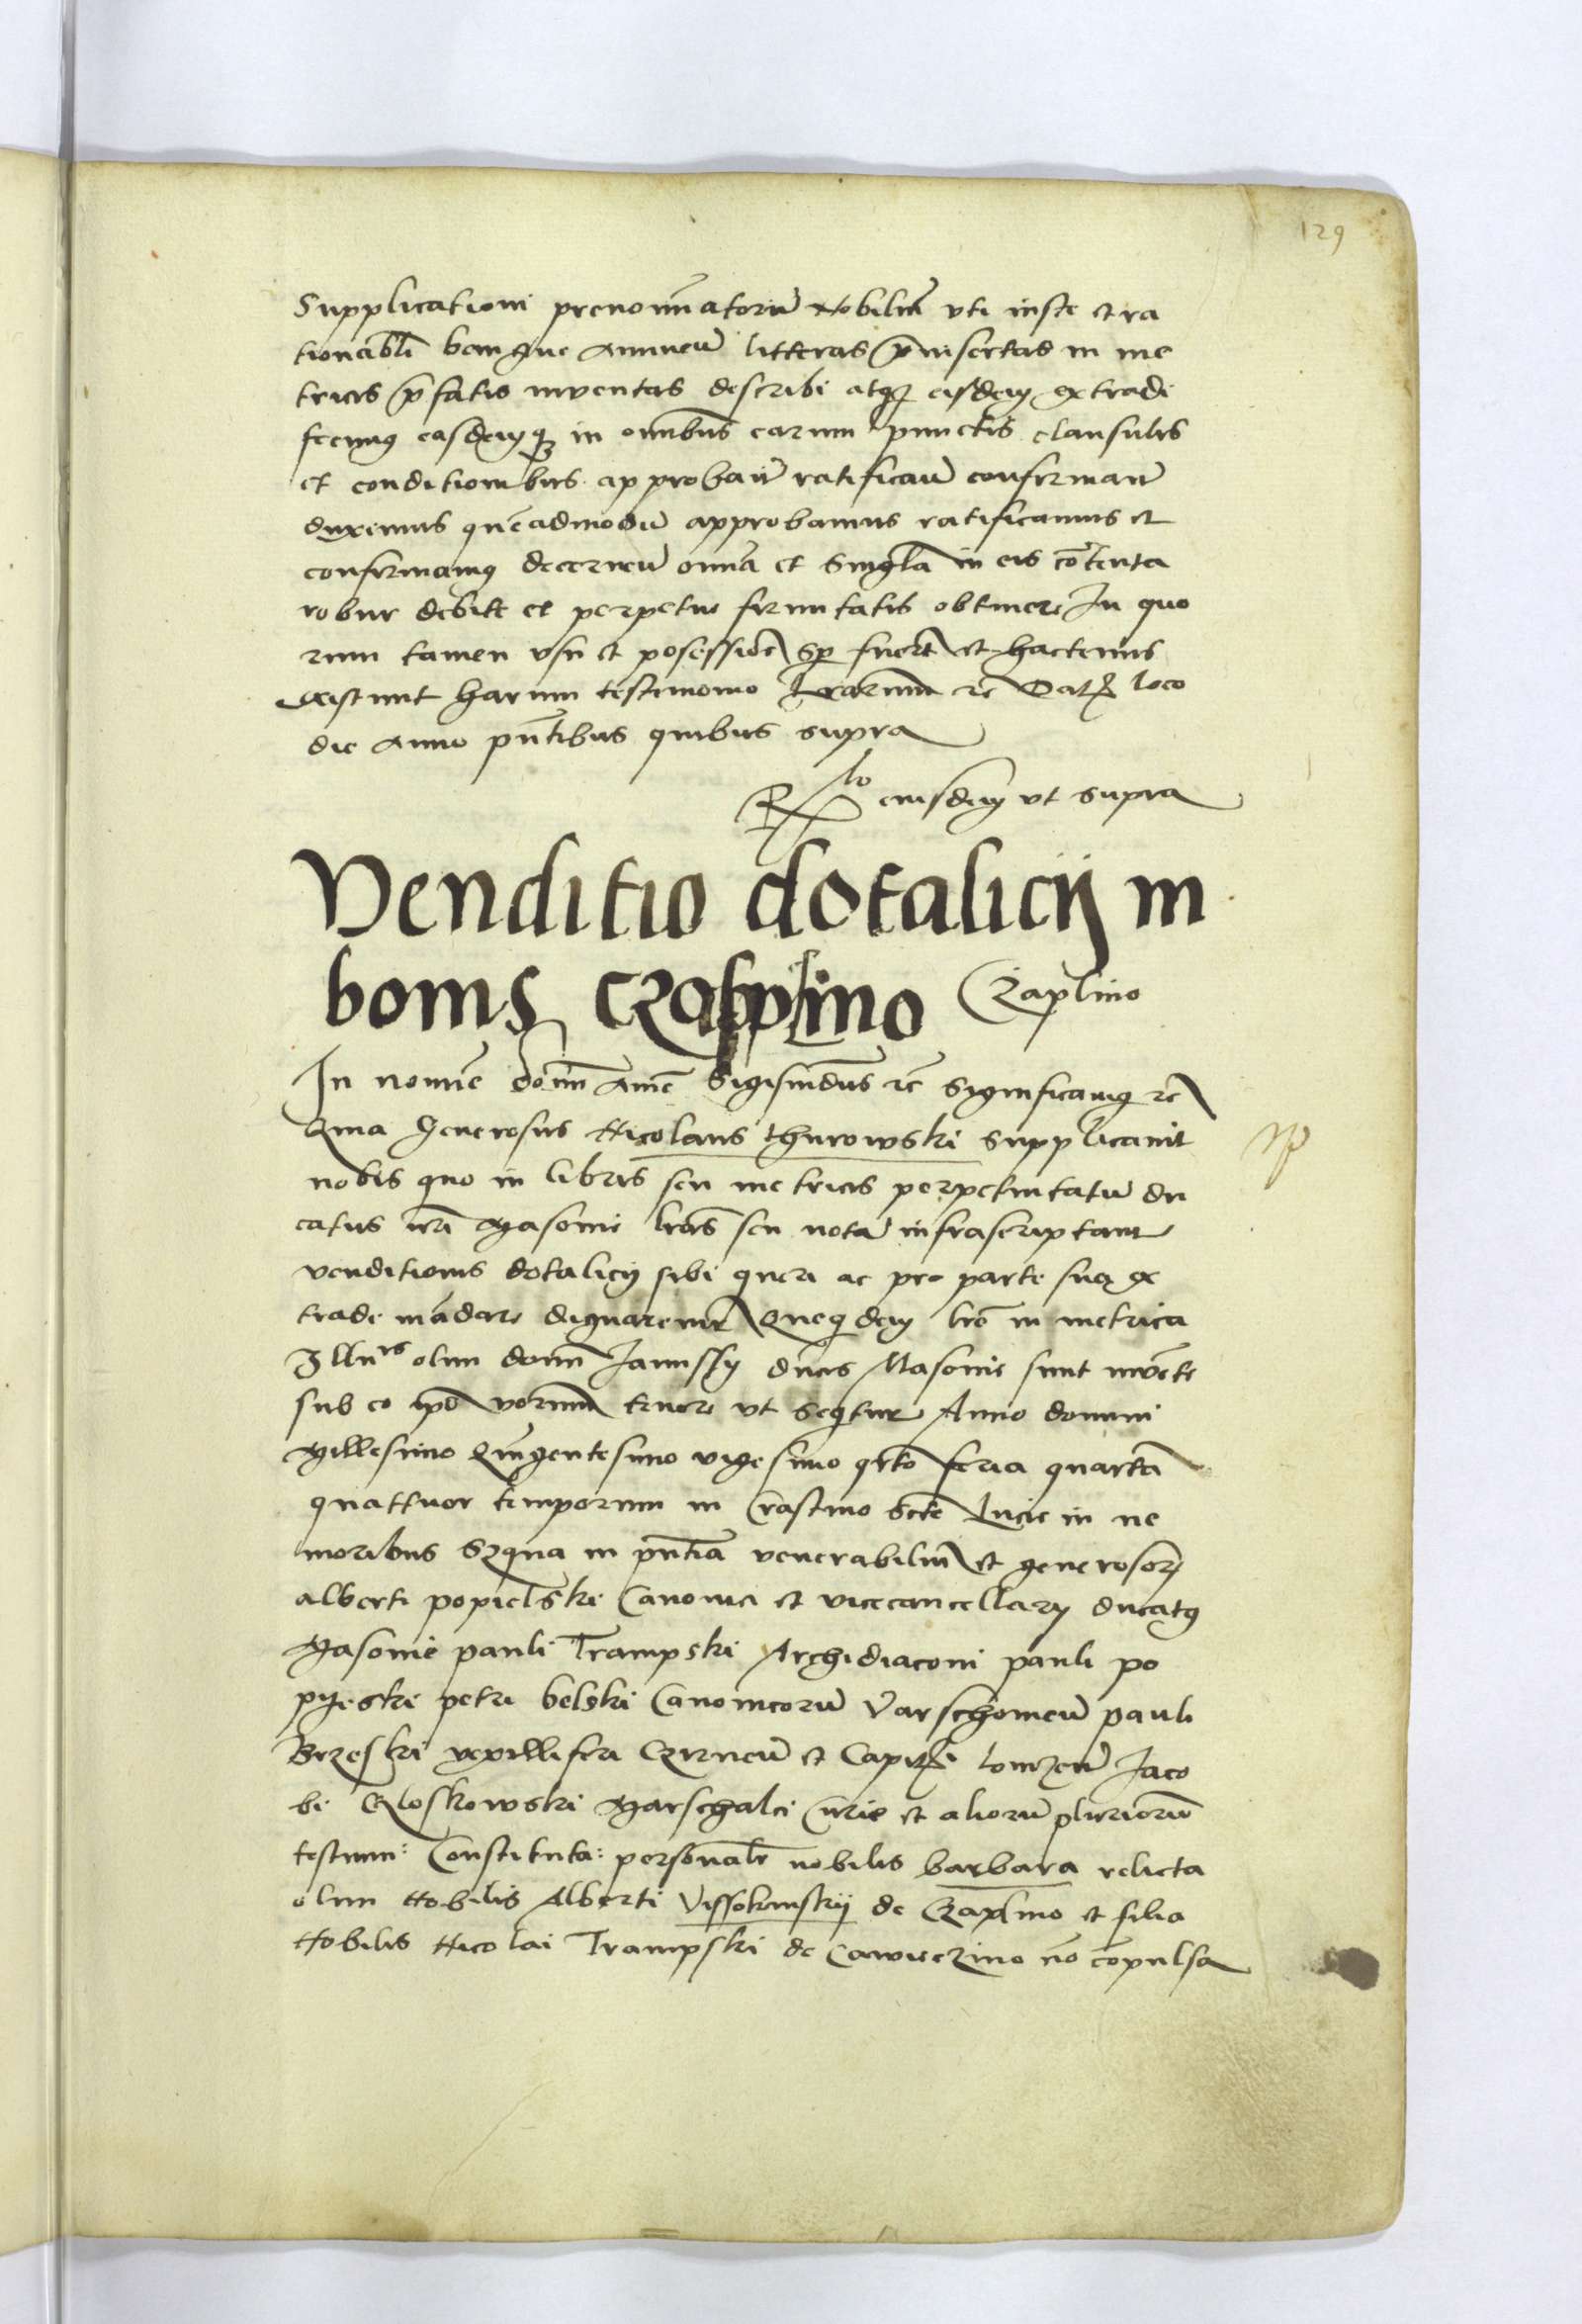 129
Supplicationi prenoīatorū Nobiliū vti iuste et ra
tionabłi benigne annueñ litteras p̄insertas in me
tricis p̄fatis inventas describi atqȝ eisdem extradi
fecimus easdemqȝ in omībus earum punctis clausulis
et conditionibus approbañ ratificañ confirmañ
duximus quēadmodū approbamus ratificamus et
confirmamus decerneñ omīa et singła in eis cōtenta
robur debite et perpetue firmitatis obtinere In quo
rum tamen vsu et posessiōe sp fuerūt et hactenus
existunt harum testimonio l̄rarum ꝛc Dat̄ loco
die Anno pn̄tibus quibus supra
R̄lo eiusdem vt supra
Venditio dotalicij in
bonis Czaplino Czaplino
In nomīe domī Amē Sigismūdus ꝛc Significamus ꝛc
Quia Generosus Nicolaus thurowski supplicauit
nobis quo in libris seu metricis perpetuitatū du
catus nr̄i Masouie l̄ras seu notā infrascriptam
venditionis dotalicij sibi queri ac pro parte sua ex
trade mādare dignaremur Quequidem lr̄e in metrica
Illmis olim domī Janussy ducis Masouie sunt invēte
sub eo ipō verum tenore vt sequitur Anno domini
Millesimo Quīgentesimo vigesimo qrto feria quarta
quattuor temporum in Crastino scte Lucie in ne
moribus Szqua in pn̄tia venerabiliū et generosorȝ
alberti popielski Canonici et vicecancellarij ducatus
Masouie pauli Trampski Archidiaconi pauli po
pyeski petri belski Canonicorū Varschouieñ pauli
Brzeski vexilliferi Czirneñ et Capit̄i lomzeñ Jaco
bi Kloskowski Marschalci Curie et aliorū pluriorū
testium: Constituta: personałr nobilis barbara relicta
olim Nobilis Alberti Vissokinskij de Czaplino et filia
Nobilis Nicolai Trampski de Cawieczino nō cōpulsa